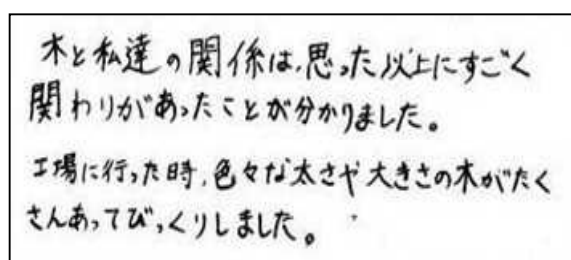 木と私達の関係は、思った以上にすごく
関わりがあったことが分かりました。
工場に行った時、色々な太さや大きさの木がたく
さんあってびっくりしました。